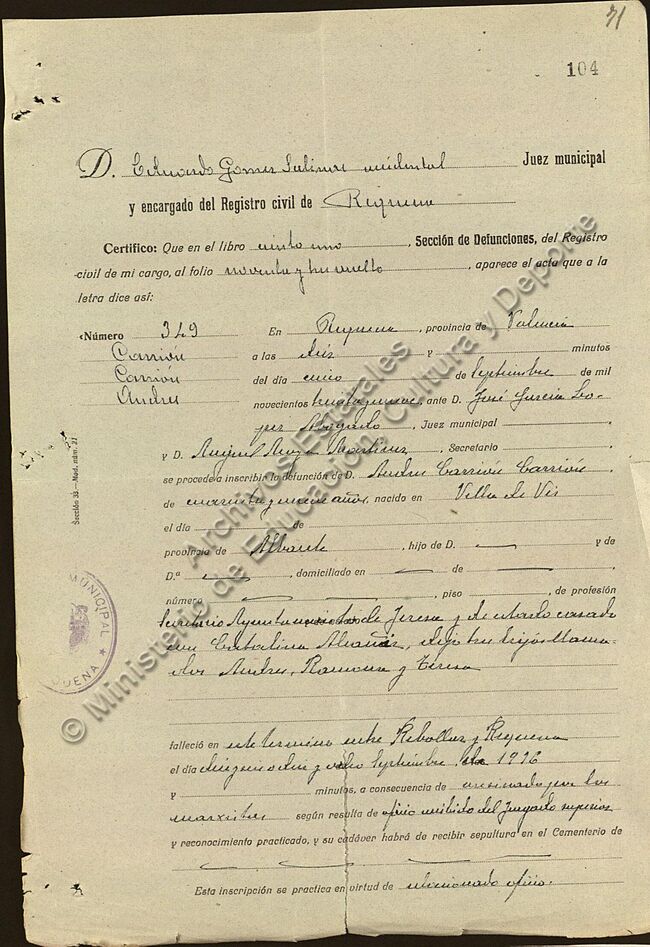 71
104
D. Eduardo Gomez accidental Juez municipal
y encargado del Registro civil de Requena
Certifico: Que en el libro ciento uno, Sección de Defunciones, del Registro
civil de mi cargo, al folio noventa y tres vuelto, aparece el acta que a la
letra dice así:
«Número 349 En Requena, provincia de Valencia
Carrión a las diez y minutos
Carrión del día cinco de Septiembre de mil
Andres novecientos treinta y nueve, ante D. José Garcia Lo-
pez Abogado, Juez municipal
y D. Miguel Martinez, Secretario
se procede a inscribir la defunción de D. Andres Carrion Carrión
de cuarenta y nueve años, nacido en Villa de Vés
el día de
provincia de Albacete, hijo de D. y de
D.ª, domiciliado en de
número, piso, de profesión
Secretario Ayuntamiento de Jeresa y de estado casado
con Catalina Alcañiz, dejó tres hijos llama-
dos Andres, Ramona y Teresa
falleció en este termino entre Rebollar y Requena
el día Septiembre de 1936
y minutos, a consecuencia de asesinado por los
marxistas según resulta de oficio recibido del Juzgado superior
y reconocimiento practicado, y su cadáver habrá de recibir sepultura en el Cementerio de
Esta inscripción se practica en virtud de relacionado oficio.
Sección 33.—Mod. núm. 27
MUNICIPAL
REQUENA
© Ministerio de Educación, Cultura y Deporte
Archivos Estatales